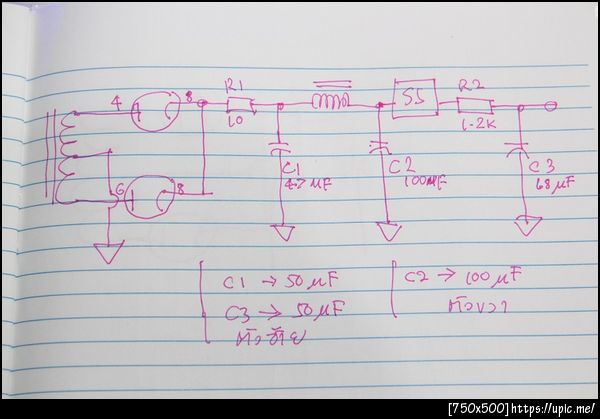 4
8
R1
10
SS
R2
1.2K
6
8
C1
4.7 µF
C2
100µF
C3
68 µF
C1 → 50 µF
C3 → 50 µF
ตัวซ้าย
C2 → 100 µF
ตัวขวา
[750x500]https://upic.me/